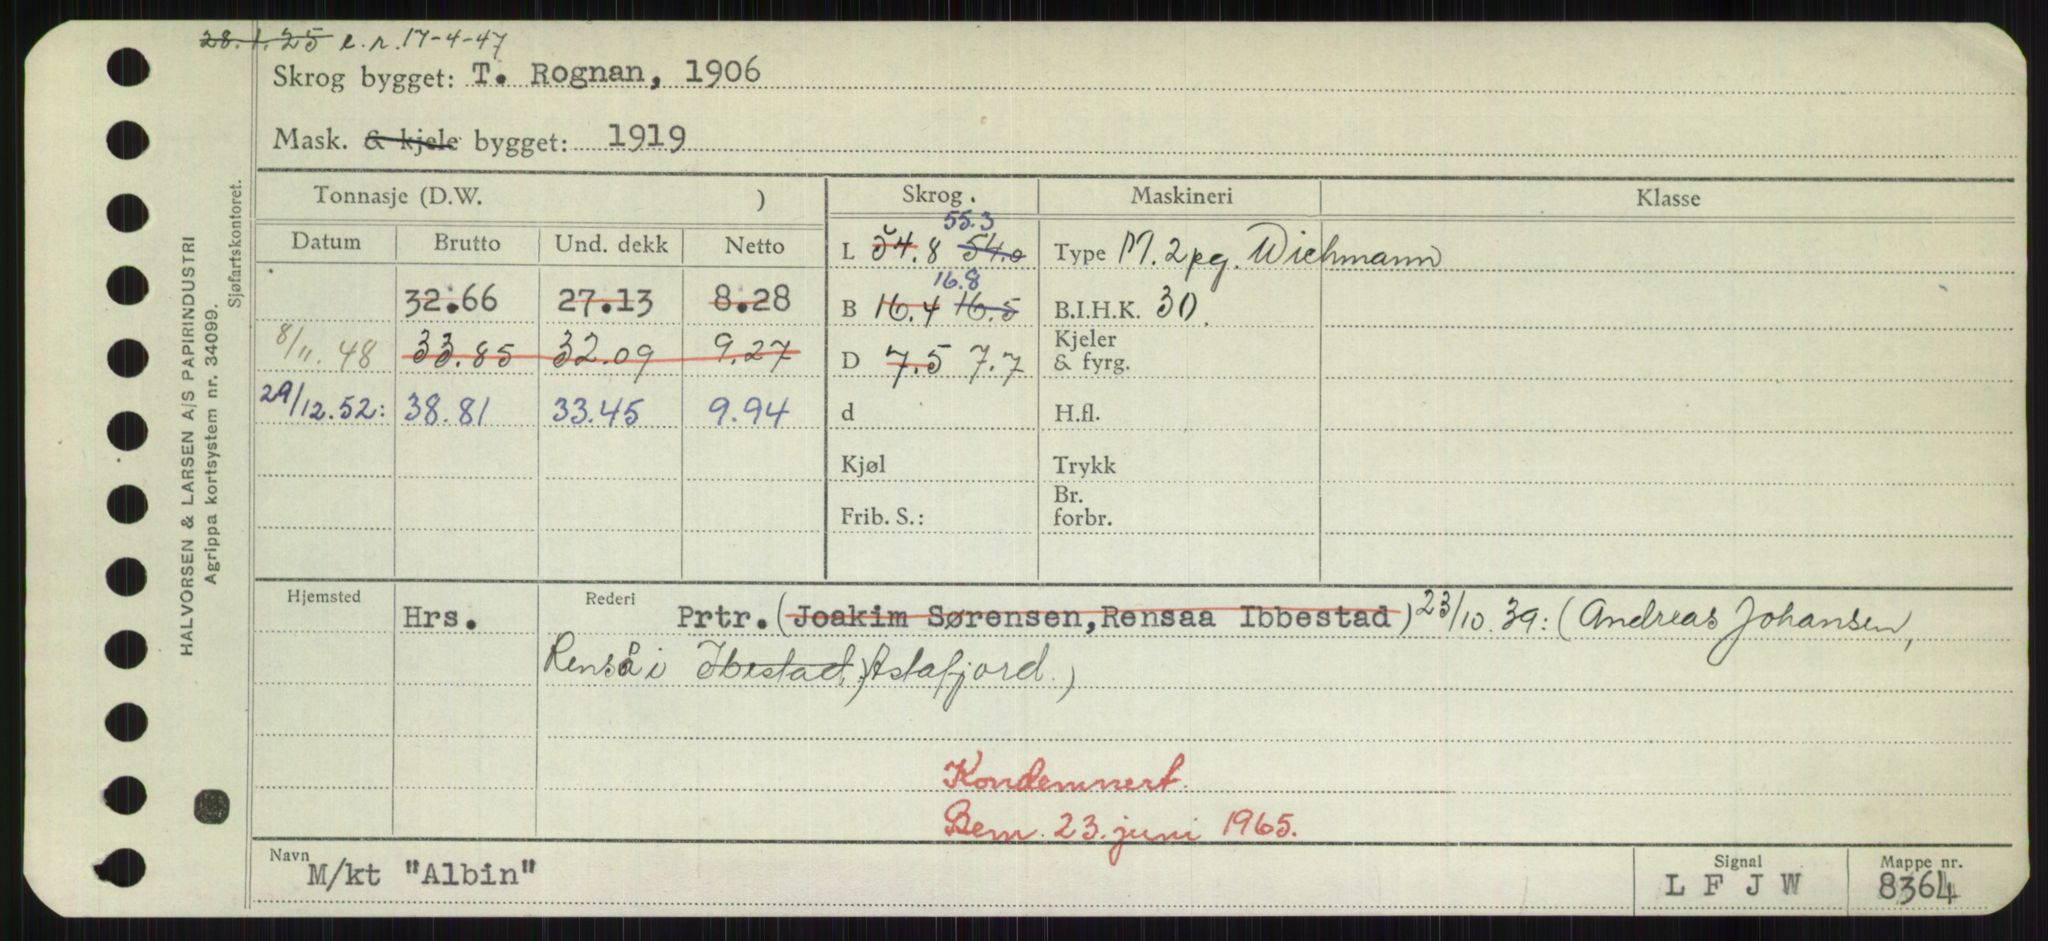 28.1.25 e.r. 17-4-47
Skrog bygget: T. Rognan, 1906
Mask. & kjele bygget: 1919
HALVORSEN & LARSEN A/S PAPIRINDUSTRI
Agrippa kortsystem nr. 34099.
Sjøfartskontoret.
Tonnasje (D.W. ) Skrog. Maskineri Klasse
Datum Brutto Und. dekk Netto
55.3
L 54.8 54.0 Type M. 2pg. Wichmann
32.66 27.13 8.28
16.8
B 16.4 16.5 B.I.H.K. 30.
8/11. 48 33.85 32.09 9.27
D 7.5 7.7 Kjeler & fyrg.
29/12.52: 38.81 33.45 9.94
d H.fl.
Kjøl Trykk
Frib. S.: Br. forbr.
Hjemsted Hrs. Rederi Prtr. (Joakim Sørensen, Rensaa Ibbestad) 23/10.39: (Andreas Johansen,
Renså i Ibestad,) Astafjord.)
Kondemnert.
Bem. 23. juni 1965.
Navn M/kt "Albin" Signal L F J W Mappe nr. 8364